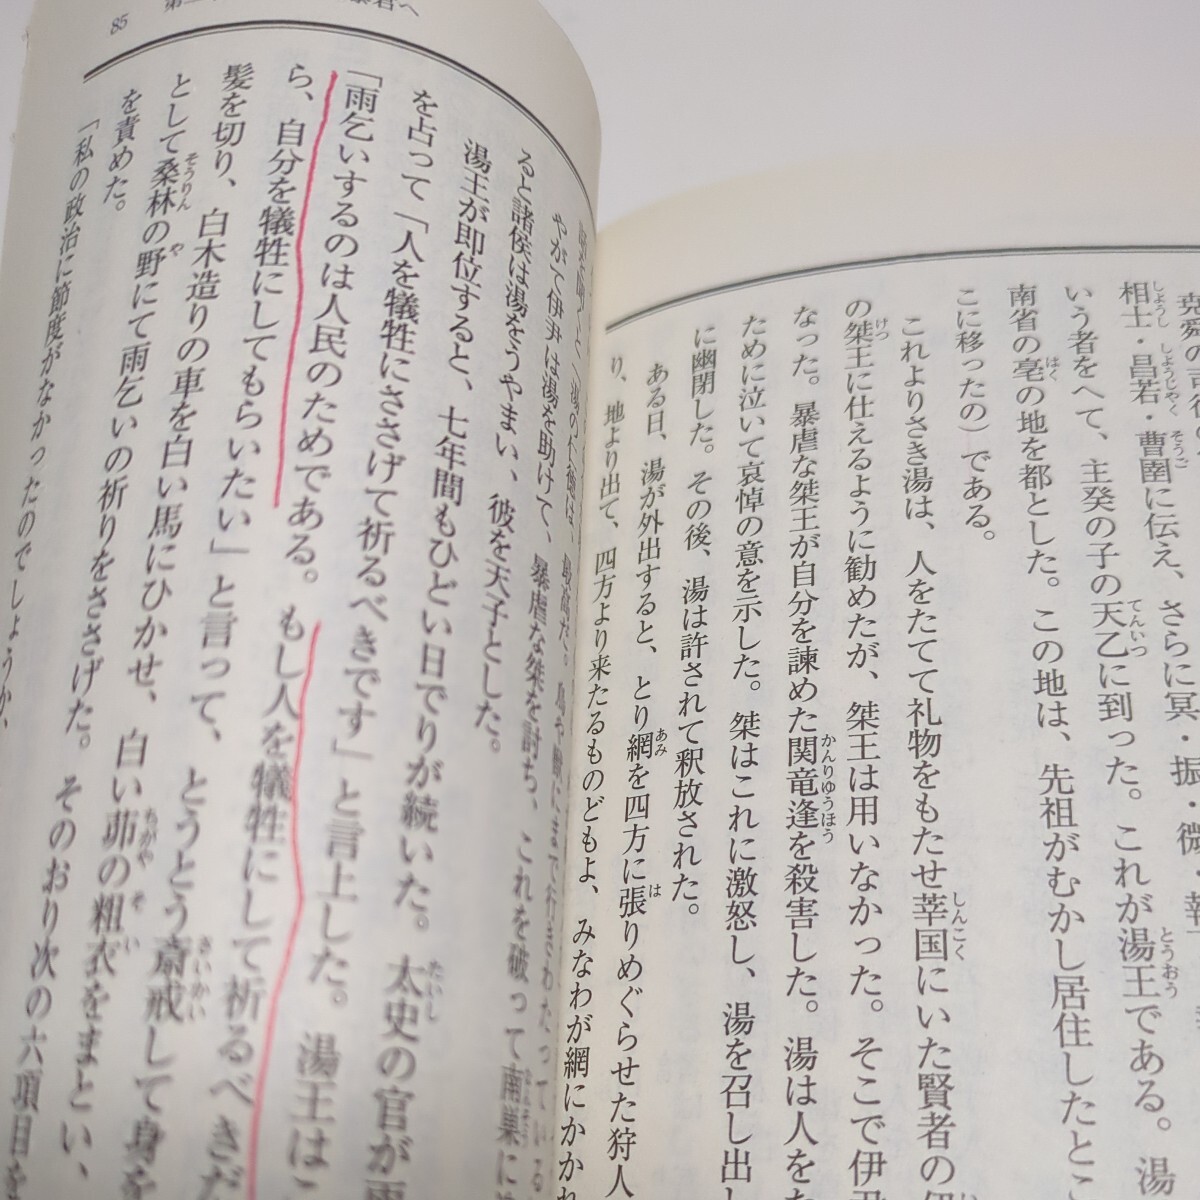 尭舜の司徒の
相士・昌若・曹圉に伝え、さらに冥・振・微・報
いう者をへて、主癸の子の天乙に到った。これが湯王である。湯
南省の亳の地を都とした。この地は、先祖がむかし居住したとこ
こに移ったの）である。
これよりさき湯は、人をたてて礼物をもたせ莘国にいた賢者の伊
の桀王に仕えるように勧めたが、桀王は用いなかった。そこで伊尹
なった。暴虐な桀王が自分を諫めた関竜逢を殺害した。湯は人をた
ために泣いて哀悼の意を示した。桀はこれに激怒し、湯を召し出し
に幽閉した。その後、湯は許されて釈放された。
ある日、湯が外出すると、とり網を四方に張りめぐらせた狩人
り、地より出て、四方より来たるものどもよ、みなわが網にかかれ
85
やがて伊尹は湯を助けて、暴虐な桀を討ち、これを破って南巣に
ると諸侯は湯をうやまい、彼を天子とした。
湯王が即位すると、七年間もひどい日でりが続いた。太史の官が雨
を占って「人を犠牲にささげて祈るべきです」と言上した。湯王は
「雨乞いするのは人民のためである。もし人を犠牲にして祈るべきだ
ら、自分を犠牲にしてもらいたい」と言って、とうとう斎戒して身を
髪を切り、白木造りの車を白い馬にひかせ、白い茆の粗衣をまとい、
として桑林の野にて雨乞いの祈りをささげた。そのおり次の六項目を
を責めた。
「私の政治に節度がなかったのでしょうか、